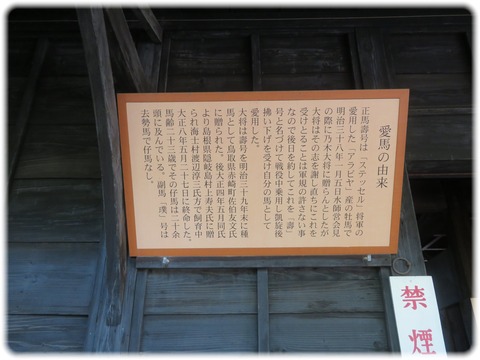 愛馬の由来
正馬壽号は「ステッセル」将軍の
愛用した「アラビヤ」産の牡馬で
明治三十八年一月五日水師営会見
の際に乃木大将に贈らんとしたが
大将はその志を謝し直ちにこれを
受けとることは軍規の許さない事
なので後日を約してこれを「壽」
号と名づけて戦役中乗用し凱旋後
拂い下げを受け自分の馬として
愛用した。
大将は壽号を明治三十九年末に種
馬として鳥取県赤崎町佐伯友文氏
に贈られた。後大正四年五月同氏
より島根県隠岐島村上寿夫氏に贈
られ海士村渡辺淳一氏方で飼育中
大正八年五月二十七日に終命した。
馬齢二十三歳でその仔馬は二十余
頭に及んでいる。副馬「璞」号は
去勢馬で仔馬なし。
禁煙